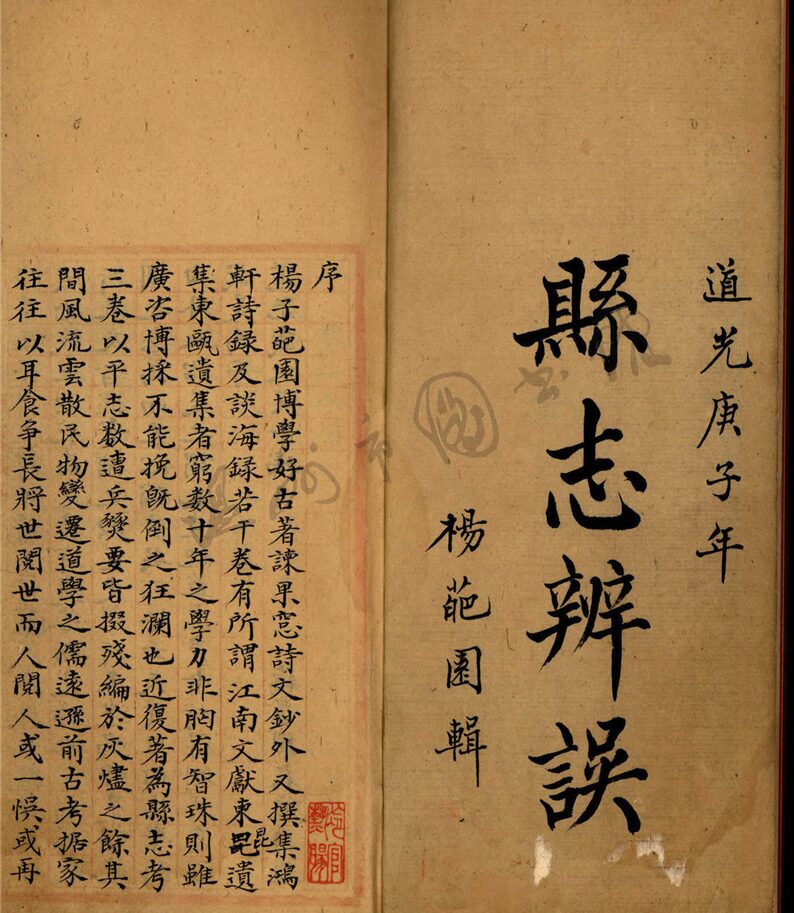 道光庚子年
縣志辨誤
楊葩園輯
序
楊子葩園博學好古著諫果窓詩文鈔外又撰集鴻
軒詩録及談海録若干卷有所謂江南文獻東毘昆遺
集東甌遺集者窮数十年之學力非胸有智珠則雖
廣咨博採不能挽旣倒之狂瀾也近復著為縣志考
三卷以平志数遭兵燹要皆掇残編於灰燼之餘其
間風流雲散民物變遷道學之儒遠遜前古考据家
往往以耳食争長將世閱世而人閱人或一悞或再